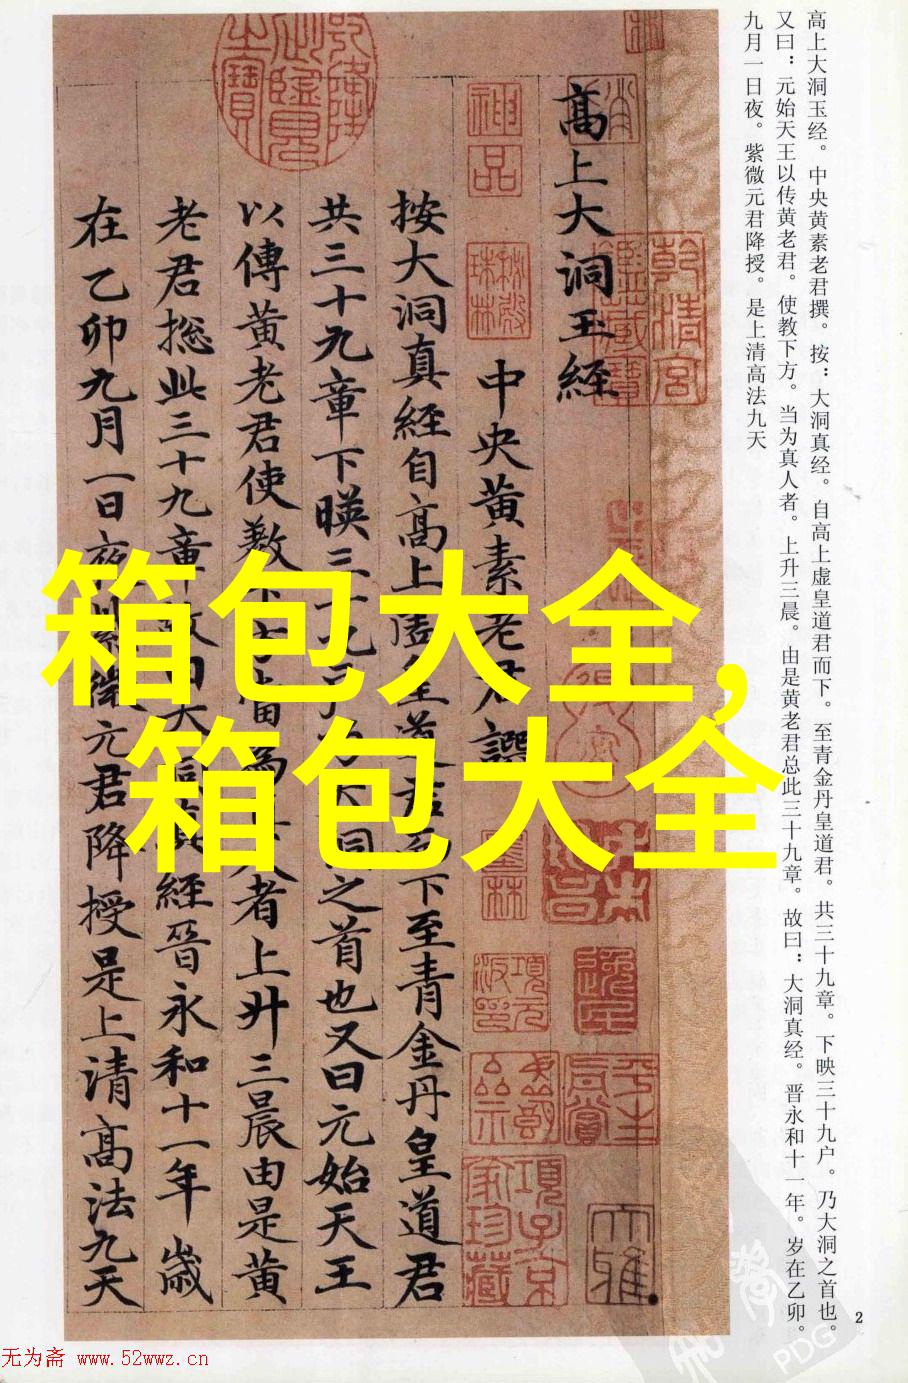 高上大洞玉经。中央黄素老君撰。按：大洞真经。自高上虚皇道君而下。至青金丹皇道君。共三十九章。下映三十九户。乃大洞之首也。
又曰：元始天王以传黄老君。使教下方。当为真人者。上升三晨。由是黄老君总此三十九章。故曰：大洞真经。晋永和十一年。岁在乙卯。
九月一日夜。紫微元君降授。是上清高法九天
髙上大洞玉經
中央黄素老君譔
按大洞真經自髙上虛皇道君而下至青金丹皇道君
共三十九章下暎三十九户乃大洞之首也又曰元始天王
以傳黄老君使教下方當為真人者上升三晨由是黄
老君捴此三十九章故曰大洞真經晉永和十一年歲
在乙卯九月一日夜紫微元君降授是上清髙法九天
神品
項子京家珍藏
箱包大全,
箱包大全
2
PDG
无为斋 www.52wwz.cn